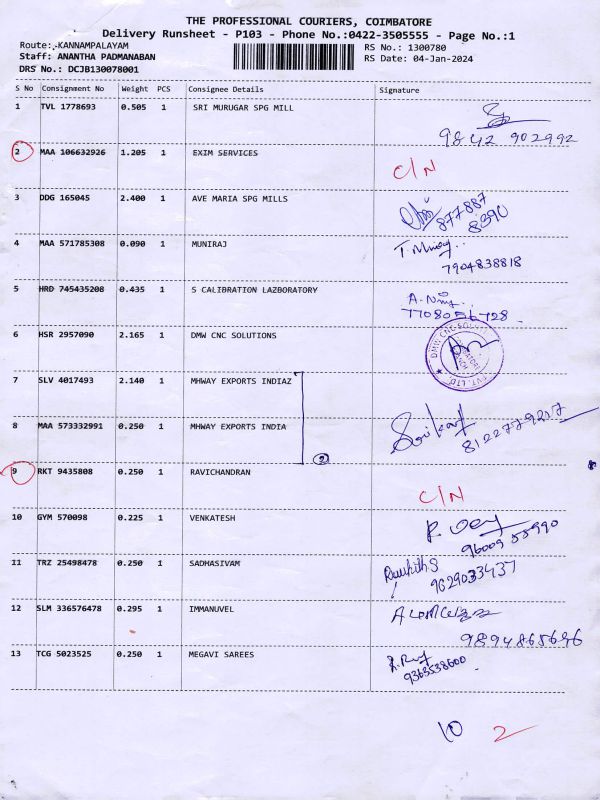 THE PROFESSIONAL COURIERS, COIMBATORE
Delivery Runsheet - P103 - Phone No.:0422-3505555 - Page No.:1
Route:-KANNAMPALAYAM RS No.: 1300780
Staff: ANANTHA PADMANABAN RS Date: 04-Jan-2024
DRS No.: DCJB130078001
S No Consignment No Weight PCS Consignee Details Signature
1 TVL 1778693 0.505 1 SRI MURUGAR SPG MILL
9842 902992
2 MAA 106632926 1.205 1 EXIM SERVICES
C/N
3 DDG 165045 2.400 1 AVE MARIA SPG MILLS
877887
8390
4 MAA 571785308 0.090 1 MUNIRAJ
7904838818
5 HRD 745435208 0.435 1 S CALIBRATION LAZBORATORY
7708056728
6 HSR 2957090 2.165 1 DMW CNC SOLUTIONS
DMW CNC SOLUTI
PVT. LTD.
7 SLV 4017493 2.140 1 MHWAY EXPORTS INDIAZ
8 MAA 573332991 0.250 1 MHWAY EXPORTS INDIA
8122779217
2
9 RKT 9435808 0.250 1 RAVICHANDRAN
C/N
10 GYM 570098 0.225 1 VENKATESH
96009 55990
11 TRZ 25498478 0.250 1 SADHASIVAM
9629033437
12 SLM 336576478 0.295 1 IMMANUVEL
9894865696
13 TCG 5023525 0.250 1 MEGAVI SAREES
9363538600
10 2